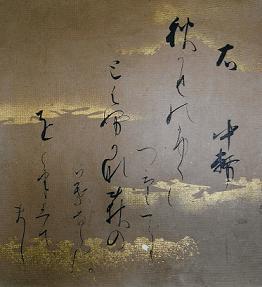 右 中務
秋かせのふくに
つけても
とはぬかな荻の
葉ならは
をとはして
まし